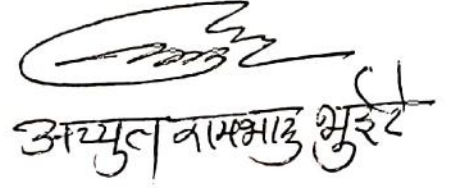 अच्युत रामभाऊ भुईटे